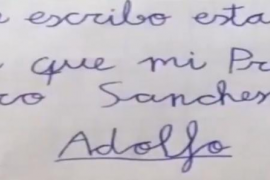 e escribo esta
que mi Pr
co Sanches
Adolfo